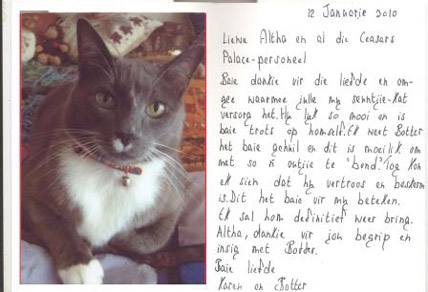 12 Januarie 2010
Liewe Altha en al die Ceasars
Palace-personeel
Baie dankie vir die liefde en om-
gee waarmee julle my senntjie-kat
versorg het. Hy lyk so mooi en is
baie trots op homself. Ek weet Botter
het baie gehuil en dit is moeilik om
met so 'n outjie te 'bond'. Tog kon
ek sien dat hy vertroos en beskerm
is. Dit het baie vir my beteken.
Ek sal hom definitief weer bring.
Altha, dankie vir jou begrip en
insig met Botter.
Baie liefde
Karen en Botter